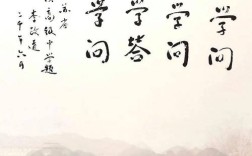 学问
学问
学答
学问
苏省
高级中学题
李政道
二千年六月